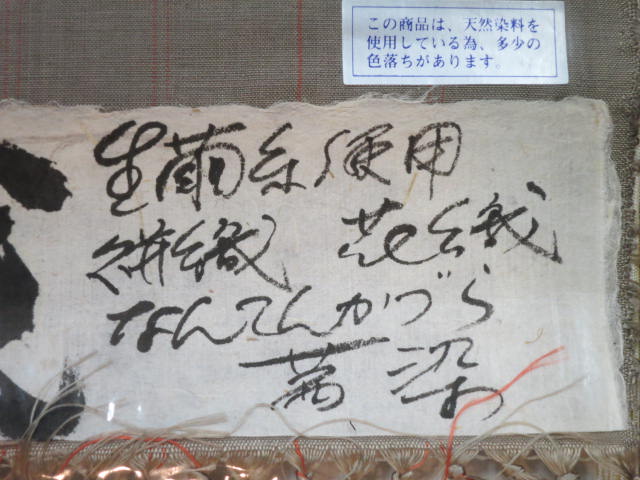 この商品は、天然染料を
使用している為、多少の
色落ちがあります。
生繭糸使用
絣織 花織
なんてんかづら
茜染